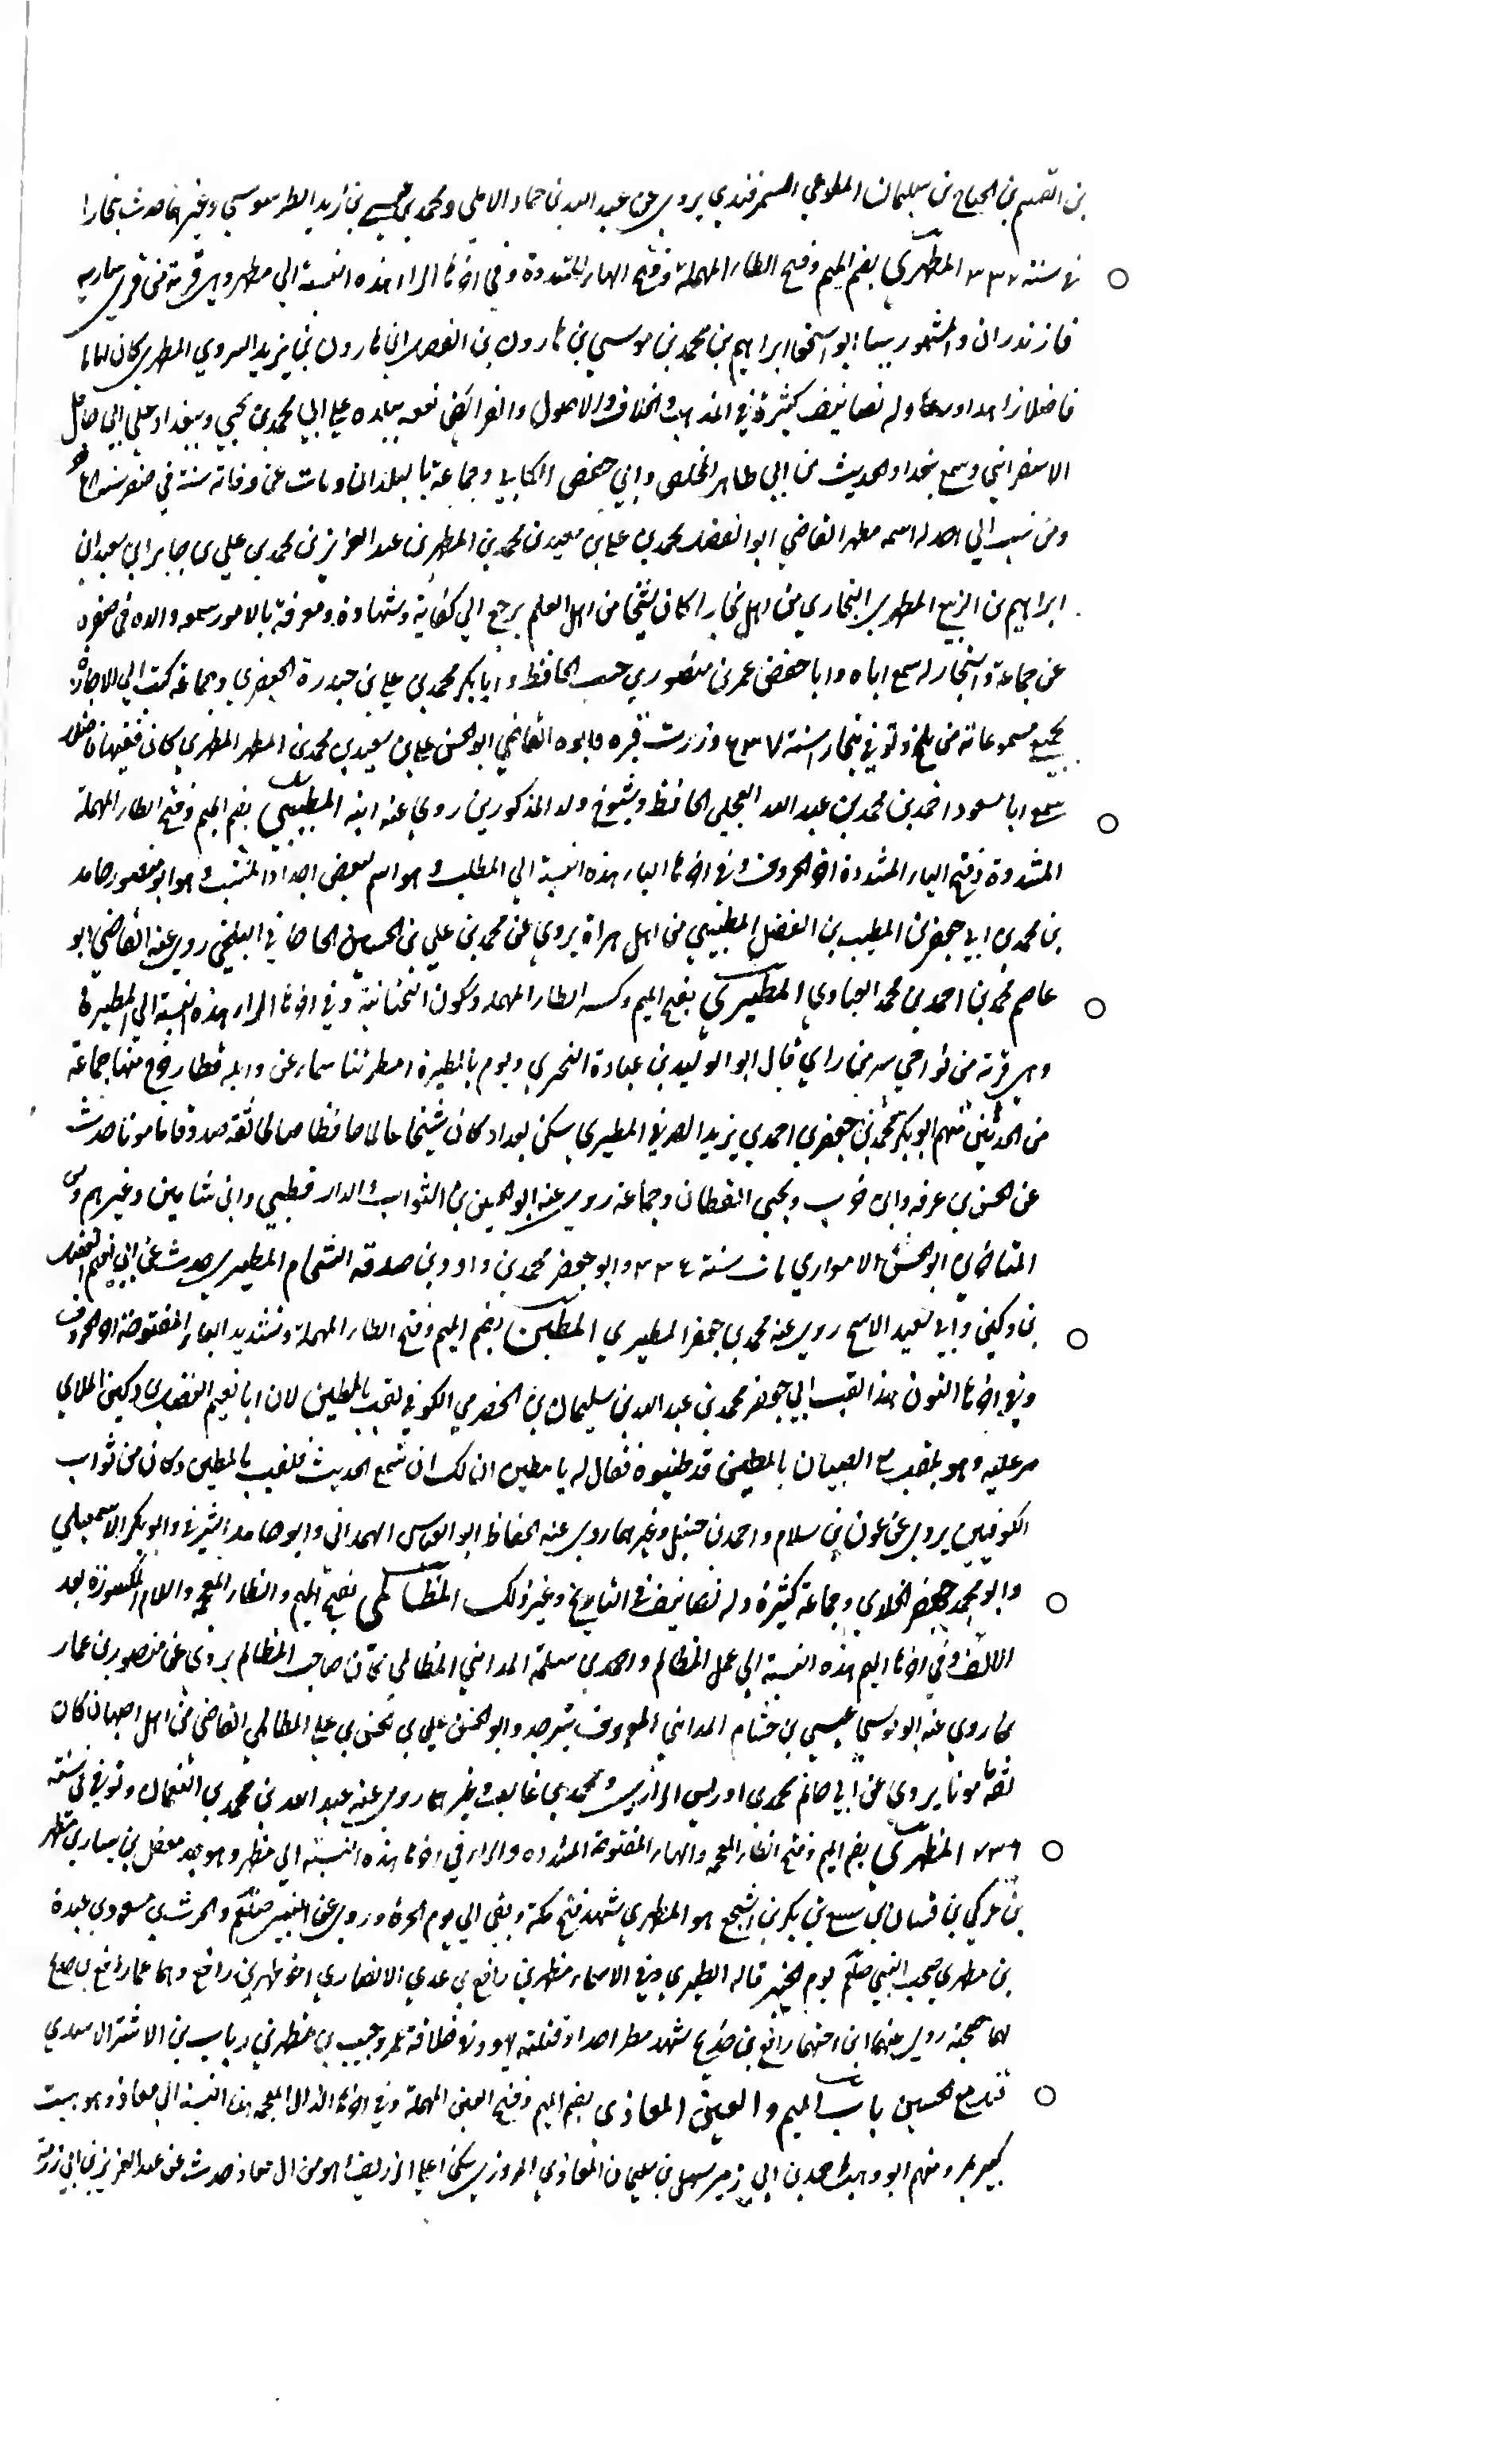 بن القسم بن الحجاج بن سليمان المطوعي السمرقندي يروي عن عبد الله بن حماد الاملي ومحمد بن عيسى بن زيد الطرسوسي وغيرهما حدث ببخارا
في سنة ٣٣٧ المطهري بضم الميم وفتح الطاء المهملة وفتح الهاء المشددة وفي اخرها الراء هذه النسبة الي مطهر وهي قرية من قري سارية
مازندران والمشهور بها ابو اسحق ابراهيم بن محمد بن موسي بن هارون بن الفضل بن هارون بن يزيد السروي المطهري كان اماما
فاضلا زاهدا ورعا وله تصانيف كثيرة في المذهب والخلاف والاصول والفرائض تفقه ببلده علي ابي محمد بن يحيي وببغداد علي ابي حامد
الاسفرائني وسمع ببغداد الحديث من ابي طاهر المخلص وابي حفص الكتاني وجماعة بالبلدان ومات عن وفاته سنة في صفر سنة
ومن نسب الي احد له اسمه مطهر القاضي ابو الفضل محمد بن علي بن سعيد بن محمد بن المطهر بن عبد العزيز بن محمد بن علي بن جابر ابي سعد ابن
ابراهيم بن الربيع المطهري البخاري من اهل بخارا كان شيخا من اهل العلم يرجع الي كفاية وشهادة ومعرفة بالامور سمعه والده في صغره
عن جماعة وببخارا سمع اباه وابا حفص عمر بن منصور بن حبيب الحافظ وابا بكر محمد بن علي بن حيدرة الجعفري وجماعة كتب الي الاجازة
بجميع مسموعاته من بلخ وتوفي ببخارا سنة وزرت قبره وابوه القاضي ابو الحسن علي بن سعيد بن محمد بن المطهر المطهري كان فقيها فاضلا
سمع ابا مسعود احمد بن محمد بن عبد الله البجلي الحافظ وشيوخ ولده المذكورين روي عنه ابنه المطيبي بضم الميم وفتح الطاء المهملة
المشددة وفتح الياء المشددة اخر الحروف وفي اخرها الباء هذه النسبة الي المطيب وهو اسم لبعض اجداد المنتسب وهو ابو منصور حامد
بن محمد بن ابي جعفر بن المطيب بن الفضل المطيبي من اهل هراة يروي عن محمد بن علي بن الحسين البلخي روي عنه القاضي ابو
عاصم محمد بن احمد بن محمد العبادي المطيري بفتح الميم وكسر الطاء المهملة وسكون التحتانية وفي اخرها الراء هذه النسبة الي المطيرة
وهي قرية من نواحي سر من راي قال ابو الوليد بن عبادة البحتري ويوم بالمطيرة امطرتنا سماء عن وابله قطار خرج منها جماعة
من المحدثين منهم ابو بكر محمد بن جعفر بن احمد بن يزيد الصيرفي المطيري سكن بغداد كان شيخا عالما حافظا صالحا ثقة صدوقا مامونا حدث
عن الحسن بن عرفة وابن حرب ويحيي القطان وجماعة روي عنه ابو الحسين بن البواب والدارقطني وابن شاهين وغيرهم
القاضي ابو الحسن مات سنة ٣٣٤ وابو جعفر محمد بن داود بن صدقة الشحام المطيري حدث عن ابي نعيم الفضل
بن دكين وابي سعيد الاشج روي عنه محمد بن جعفر المطيري المطين بضم الميم وفتح الطاء المهملة وتشديد الياء المفتوحة اخر الحروف
وفي اخرها النون هذا لقب ابي جعفر محمد بن عبد الله بن سليمان بن الحضرمي الكوفي لقب بالمطين لان ابا نعيم الفضل بن دكين الملائي
مر عليه وهو يلعب مع الصبيان بالمطين قد طينوه فقال له يا مطين ان لك ان تسمع الحديث فلقب بالمطين وكان من ثقات
الكوفيين يروي عن عون بن سلام واحمد بن حنبل وغيرهما روي عنه الحفاظ ابو العباس الهمداني وابو حامد الشرفي وابو بكر الاسمعيلي
وابو محمد جعفر الخلدي وجماعة كثيرة وله تصانيف في التاريخ وغير ذلك المظالمي بفتح الميم والظاء المعجمة واللام المكسورة بعد
الالف وفي اخرها الميم هذه النسبة الي عمل المظالم واحمد بن سلمة المدايني المظالمي كان صاحب المظالم يروي عن منصور بن عمار
روي عنه ابو موسي عيسي بن خشام المدايني المعروف وابو الحسن علي بن الحسن بن علي المظالمي القاضي من اهل اصبهان كان
ثقة مامونا يروي عن ابي حاتم محمد بن ادريس الرازي ومحمد بن غالب وغيرهما روي عنه عبد الله بن محمد بن النعمان وتوفي في سنة
المظهري بضم الميم وفتح الظاء المعجمة والهاء المفتوحة المشددة والراء في اخرها هذه النسبة الي مظهر وهو جد معقل بن سنان بن مظهر
بن عركي بن فتيان بن سبيع بن بكر بن اشجع هو المظهري شهد فتح مكة وبقي الي يوم الحرة وروي عن النبي صلعم والحرث بن مسعود بن عبدة
بن مظهر صحب النبي صلعم يوم الجسر قاله الطبري وفي الاسماء مظهر بن رافع بن عدي الانصاري اخو ظهير بن رافع وهما عما رافع بن خديج
لهما صحبة روي عنهما ابن اخيهما رافع بن خديج شهد مظهر احدا وقتلته يهود في خلافة عمر وحبيب بن مظهر بن رباب بن الاشتر الاسدي
قتل مع الحسين باب الميم والعين المعاذي بضم الميم وفتح العين المهملة وفي اخرها الذال المعجمة هذه النسبة الي معاذ وهو بيت
كبير بمرو منهم ابو وهب احمد بن ابي زهير سهل بن سليمان المعاذي المروزي سكن اعلي وهو من ال معاذ حدث عن عبد العزيز بن ابي رزمة